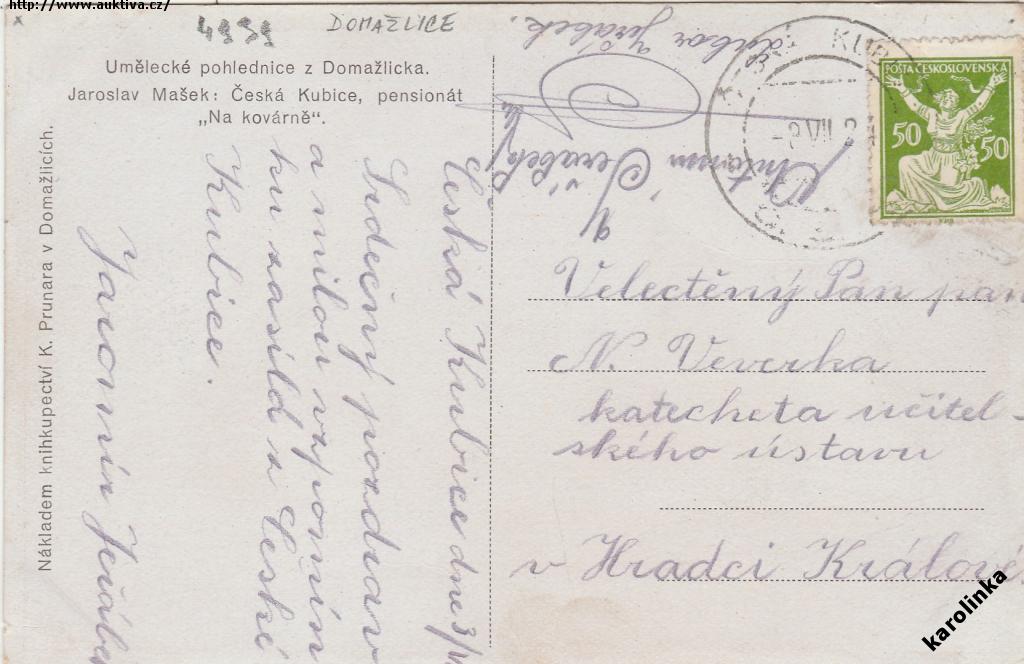 http://www.auktiva.cz/
4939
DOMAŽLICE
Umělecké pohlednice z Domažlicka.
Jaroslav Mašek: Česká Kubice, pensionát
„Na kovárně“.
Nákladem knihkupectví K. Prunara v Domažlicích.
Česká Kubice dne 3/
Srdečný pozdrav
a milou vzpomín
ku zasílá z České
Kubice.
Jaromír Jeřábek
Jeřábek.
Antonín
Jeřábek
POŠTA ČESKOSLOVENSKÁ
50 50
VII
Velectěný Pán pan
N. Veverka
katecheta učitel-
ského ústavu
v Hradci Králové
karolinka